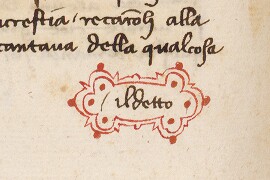 acrestia / recaroh alla
cantaua della qualcosa
/ ildetto